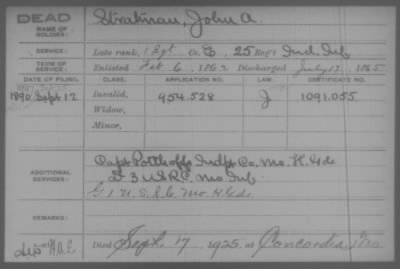 DEAD
NAME OF SOLDIER:
Stratman, John A.
SERVICE:
Late rank, 1 Sgt Co. E, 25 Reg't Ind. Inf
TERM OF SERVICE:
Enlisted Feb 6, 1862 Discharged July 17, 1865
DATE OF FILING. CLASS. APPLICATION NO. LAW. CERTIFICATE NO.
1890 Sept 12 Invalid, 954.528 J 1091.055
Widow,
Minor,
ADDITIONAL SERVICES:
Capt Potthoffs Indpt Co. Mo. H. Gds
D 3 U.S.R.C. Mo Inf.
G 1 U.S.R.C. Mo H Gds
REMARKS:
Died Sept. 17, 1925, at Concordia, Mo.